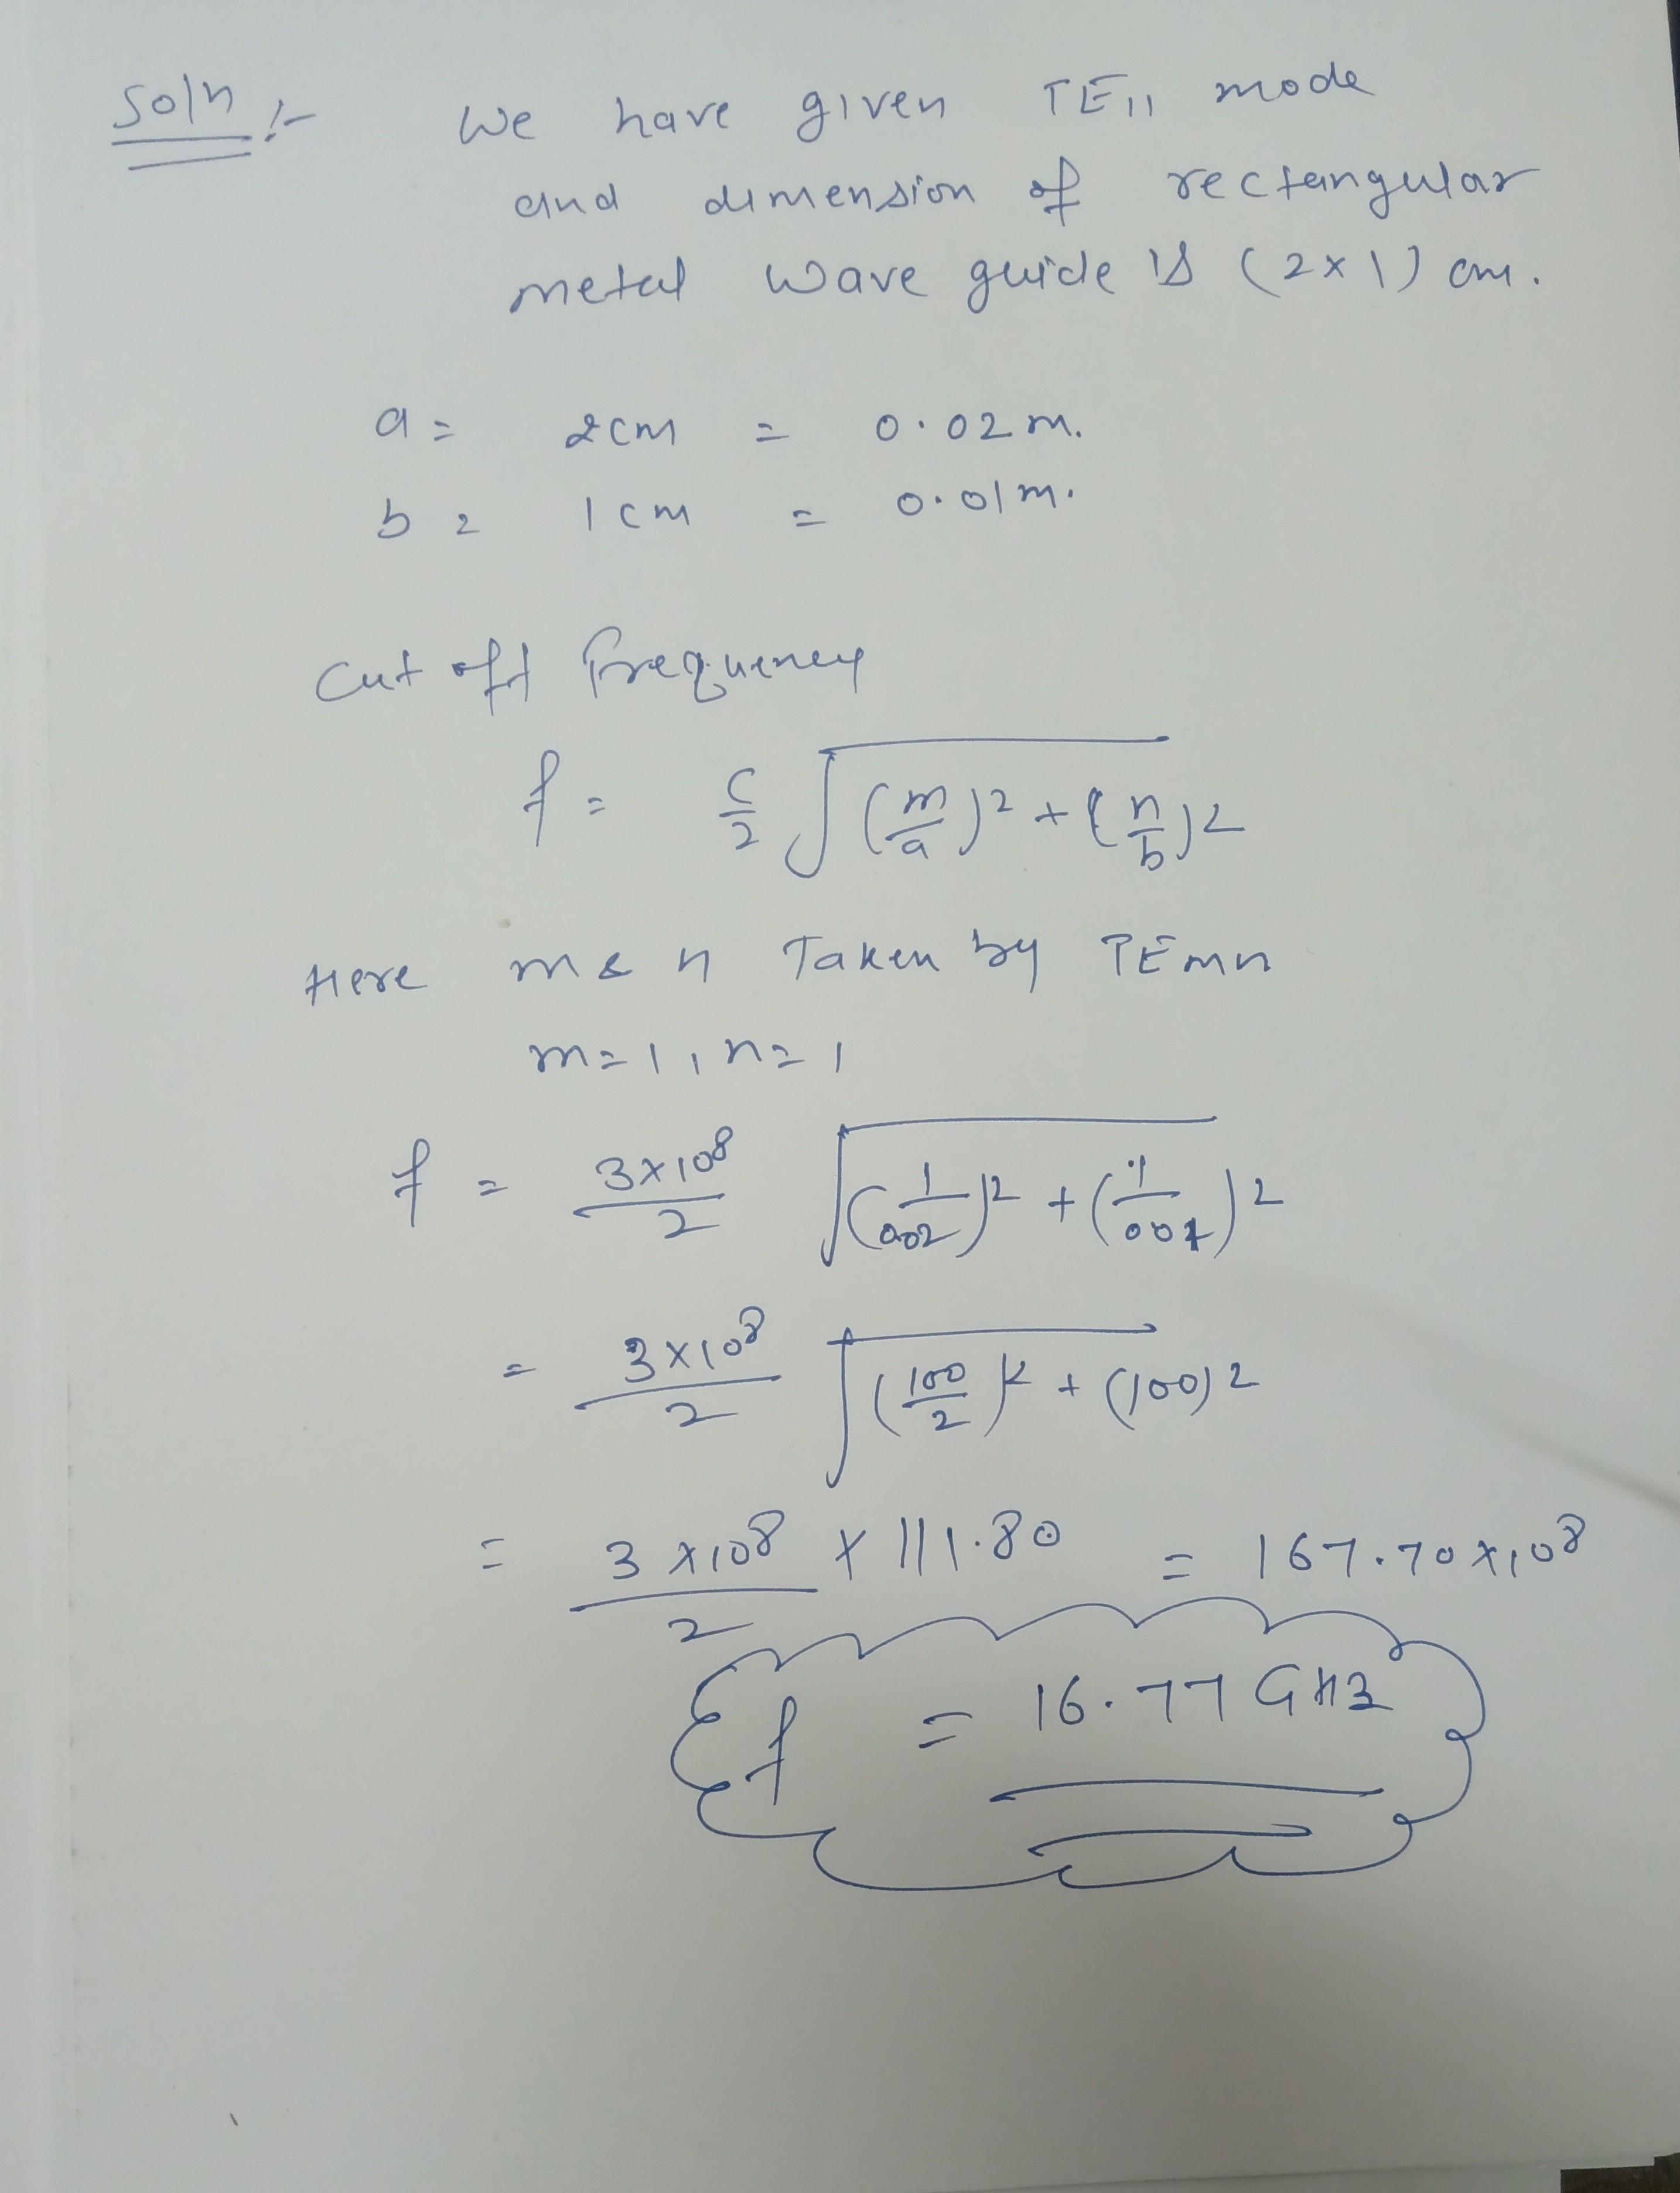 Soln :-   We have given TE11 mode
and dimension of rectangular
metal wave guide is (2×1) cm.
a = 2cm = 0.02m.
b = 1cm = 0.01m.
Cut off frequency
f = c/2 √((m/a)² + (n/b)²)
Here m & n Taken by TEmn
m=1, n=1
f = 3×10⁸/2 √((1/0.02)² + (1/0.01)²)
= 3×10⁸/2 √((100/2)² + (100)²)
= 3×10⁸/2 × 111.80 = 167.70×10⁸
f = 16.77 GHz